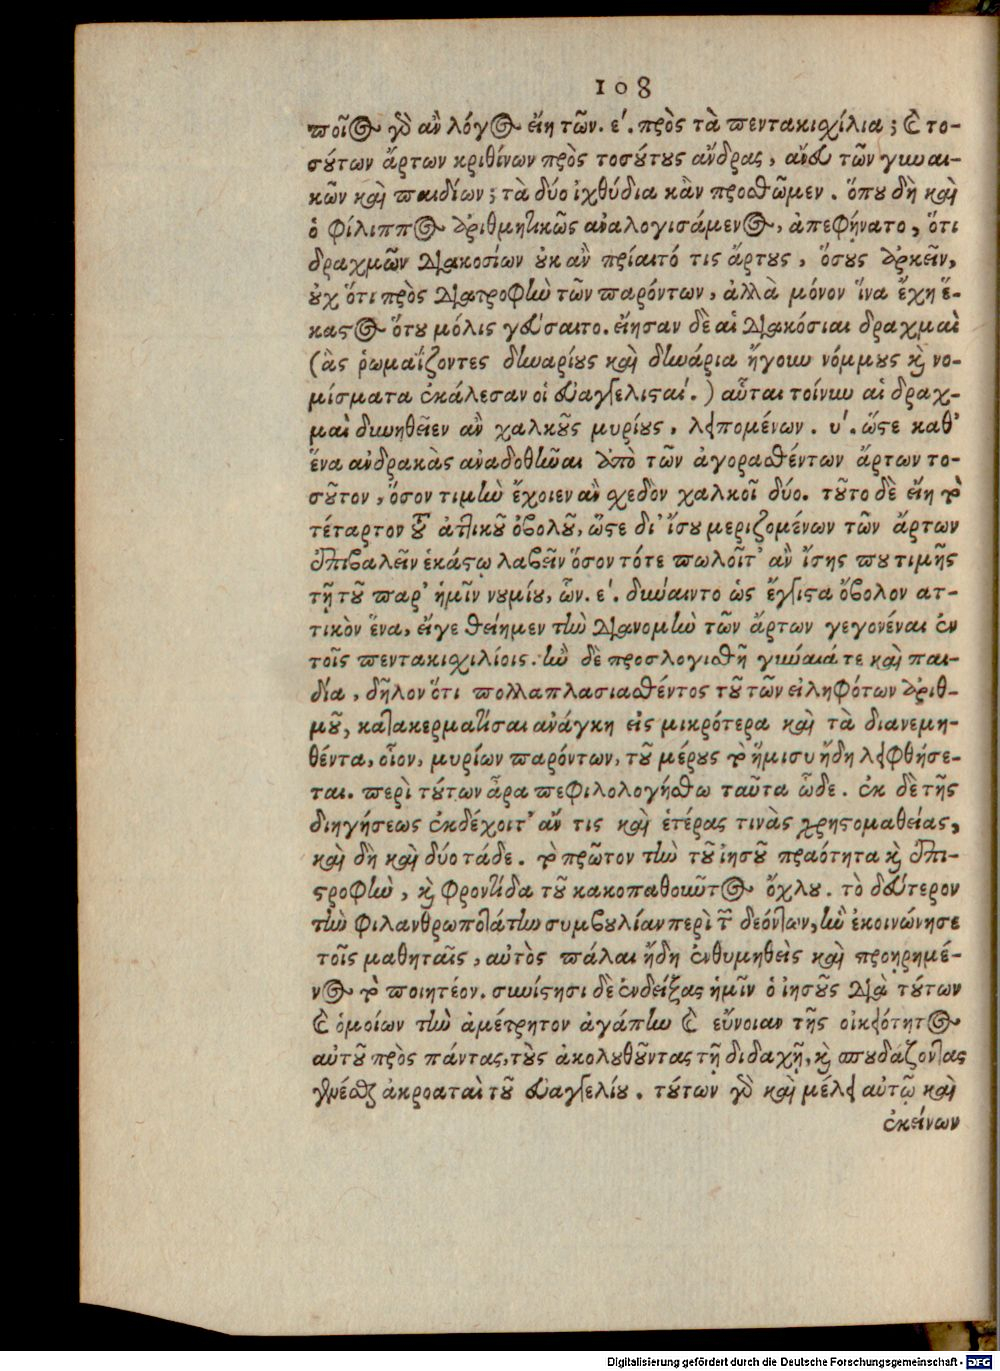 108
ποῖος γὰρ ἂν λόγος εἴη τῶν. ε΄. πρὸς τὰ πεντακιχίλια; καὶ το-
σύτων ἄρτων κριθίνων πρὸς τοσύτους ἄνδρας, ἄνευ τῶν γυναι-
κῶν καὶ παιδίων; τὰ δύο ἰχθύδια κἂν προσθῶμεν. ὅπου δὴ καὶ
ὁ Φίλιππος ἀριθμητικῶς ἀναλογισάμενος, ἀπεφήνατο, ὅτι
δραχμῶν διακοσίων οὐκ ἂν πρίαιτό τις ἄρτους, ὅσους ἀρκεῖν,
οὐχ ὅτι πρὸς διατροφὴν τῶν παρόντων, ἀλλὰ μόνον ἵνα ἔχῃ ἕ-
καστος ὅτου μόλις γεύσαιτο. εἴησαν δὲ αἱ διακόσιαι δραχμαὶ
(ἃς ῥωμαΐζοντες δηναρίους καὶ δηνάρια ἤγουν νόμμους καὶ νο-
μίσματα ἐκάλεσαν οἱ εὐαγγελισταί.) αὗται τοίνυν αἱ δραχ-
μαὶ δυνηθεῖεν ἂν χαλκοῦς μυρίους, λειπομένων. υ΄. ὥστε καθ'
ἕνα ἀνδρακὰς ἀναδοθῆναι ἀπὸ τῶν ἀγορασθέντων ἄρτων το-
σοῦτον, ὅσον τιμὴν ἔχοιεν ἂν σχεδὸν χαλκοῖ δύο. τοῦτο δὲ εἴη τὸ
τέταρτον τοῦ ἀττικοῦ ὀβολοῦ, ὥστε δι' ἴσου μεριζομένων τῶν ἄρτων
ἐπιβαλεῖν ἑκάστῳ λαβεῖν ὅσον τότε πωλοῖτ' ἂν ἴσης που τιμῆς
τῇ τοῦ παρ' ἡμῖν νυμίου, ὧν. ε΄. δύναιντο ὡς ἔγγιστα ὄβολον ατ-
τικὸν ἕνα, εἴγε θείημεν τὴν διανομὴν τῶν ἄρτων γεγονέναι ἐν
τοῖς πεντακιχιλίοις. ἢν δὲ προσλογισθῇ γύναιά τε καὶ παι-
δία, δῆλον ὅτι πολλαπλασιασθέντος τοῦ τῶν εἰληφότων ἀριθ-
μοῦ, κατακερματίσαι ἀνάγκη εἰς μικρότερα καὶ τὰ διανεμη-
θέντα, οἷον, μυρίων παρόντων, τοῦ μέρους τὸ ἥμισυ ἤδη λειφθήσε-
ται. περὶ τούτων ἆρα πεφιλολογήσθω ταῦτα ὧδε. ἐκ δὲ τῆς
διηγήσεως ἐκδέχοιτ' ἄν τις καὶ ἑτέρας τινὰς χρηστομαθείας,
καὶ δὴ καὶ δύο τάδε. τὸ πρῶτον τὴν τοῦ ἰησοῦ πραότητα καὶ ἐπι-
στροφὴν, καὶ φροντίδα τοῦ κακοπαθοῦντος ὄχλου. τὸ δεύτερον
τὴν φιλανθρωποτάτην συμβουλίαν περὶ τῶν δεόντων, ἣν ἐκοινώνησε
τοῖς μαθηταῖς, αὐτὸς πάλαι ἤδη ἐνθυμηθεὶς καὶ προηρημέ-
νος τὸ ποιητέον. συνίστησι δὲ ἐνδείξας ἡμῖν ὁ ἰησοῦς διὰ τούτων
καὶ ὁμοίων τὴν ἀμέτρητον ἀγάπην καὶ εὔνοιαν τῆς οἰκειότητος
αὐτοῦ πρὸς πάντας, τοὺς ἀκολουθοῦντας τῇ διδαχῇ, καὶ σπουδάζοντας
γενέσθαι ἀκροαταὶ τοῦ εὐαγγελίου. τούτων γὰρ καὶ μέλει αὐτῷ καὶ
ἐκείνων
Digitalisierung gefördert durch die Deutsche Forschungsgemeinschaft - DFG